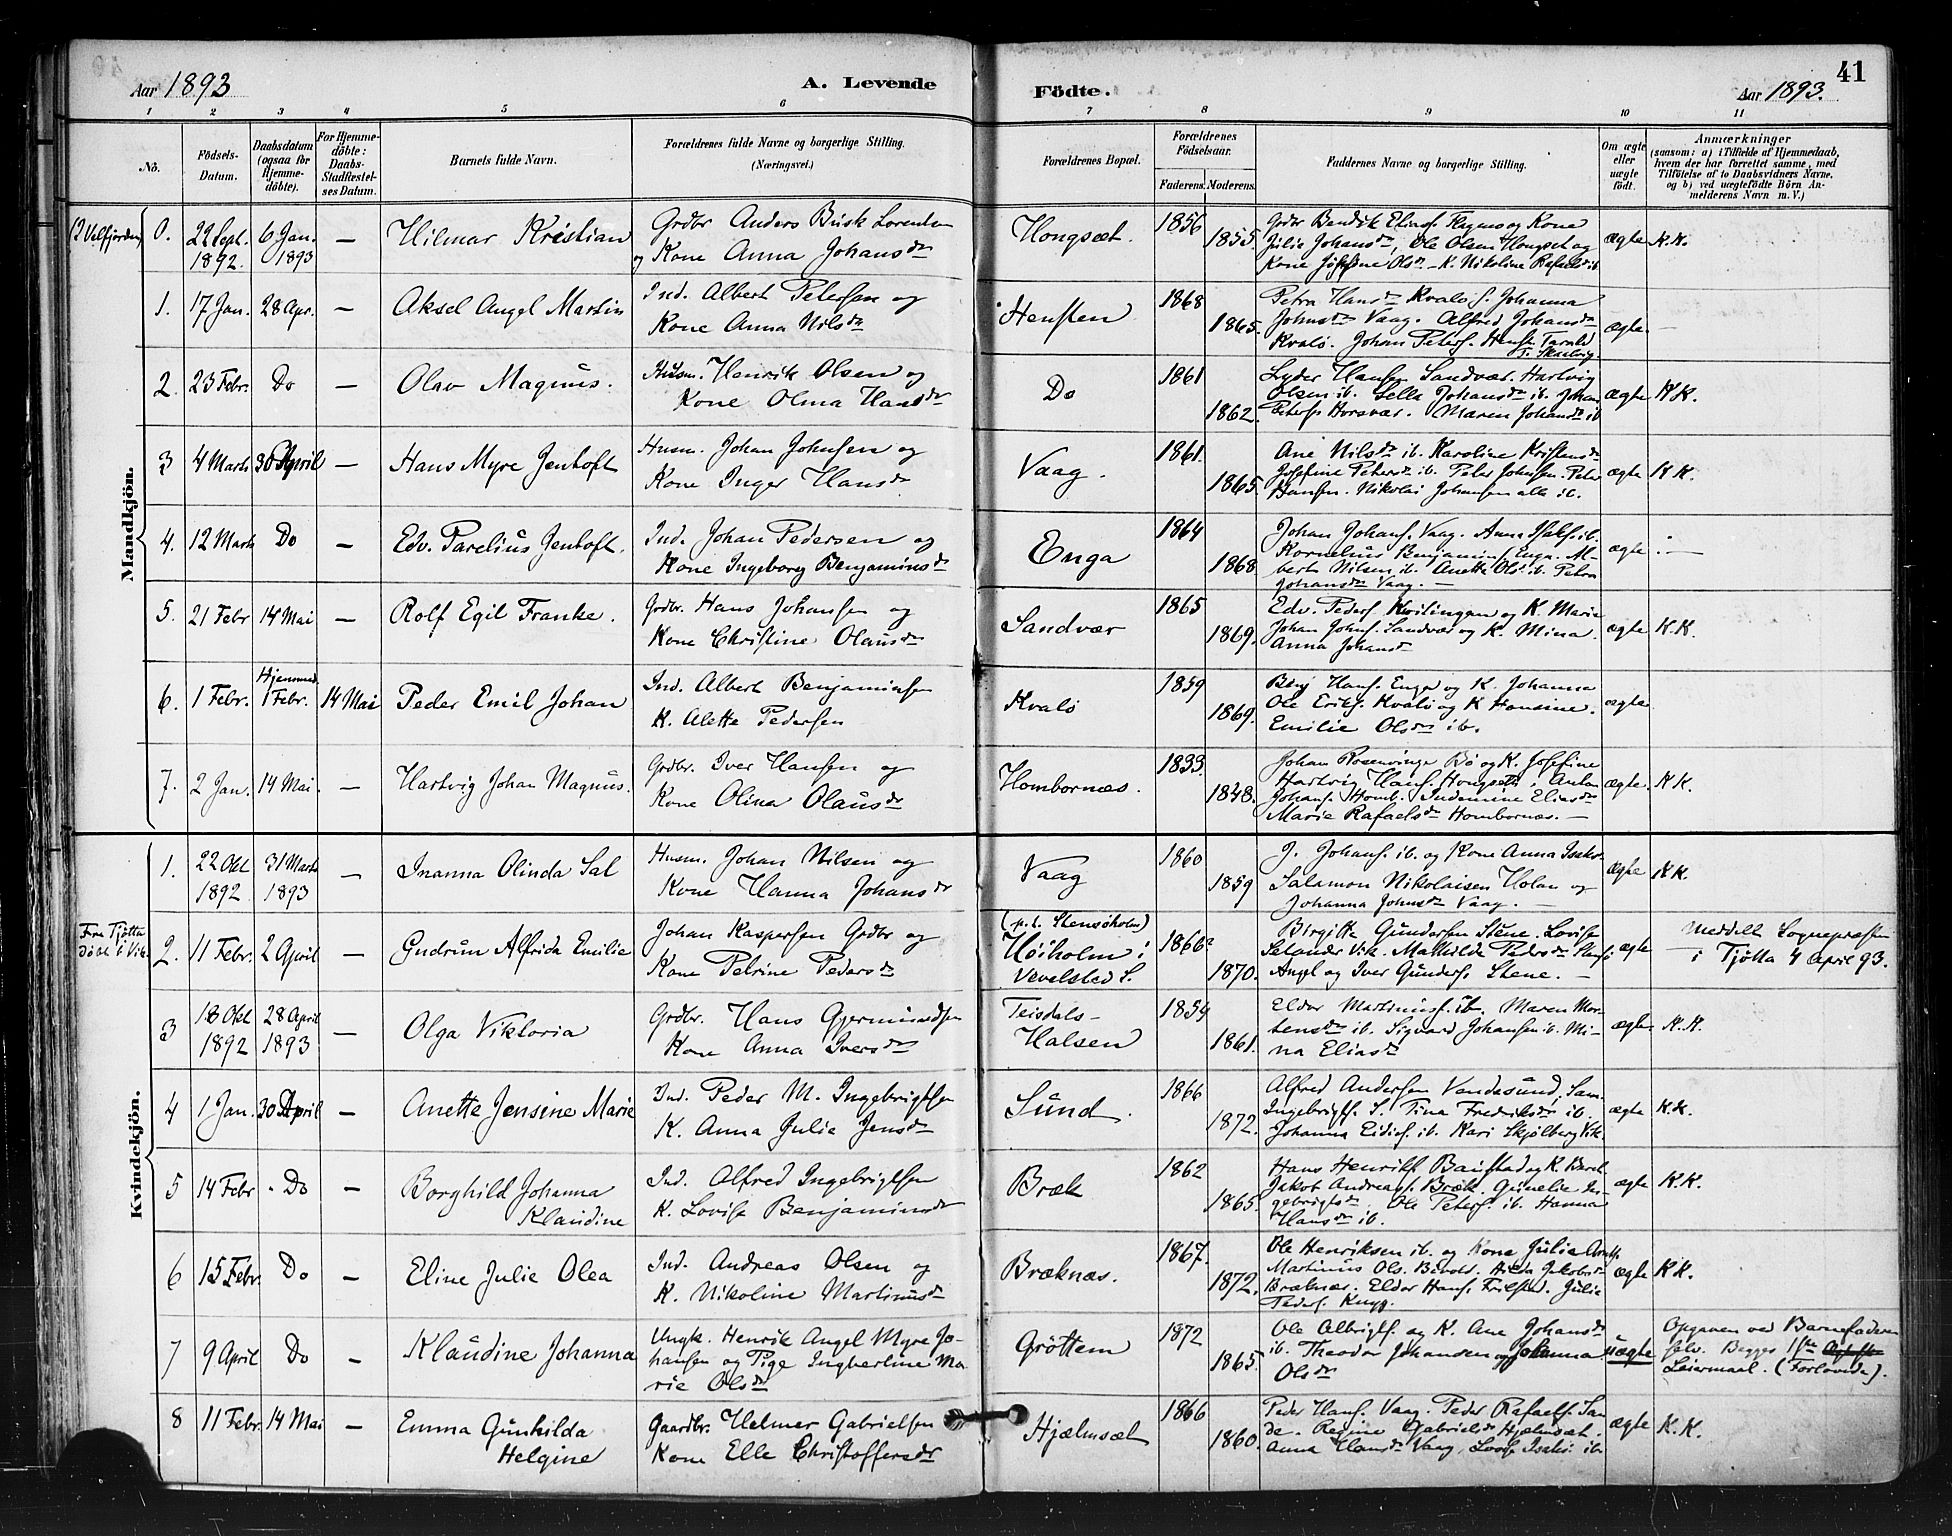 41
Aar 1893
A. Levende
Födte.
Aar 1893.
1 2 3 4 5 6 7 8 9 10 11
No.
Födsels-Datum.
Daabsdatum (ogsaa for Hjemmedöbte).
For Hjemmedöbte: Daabs-Stadfæstelses Datum.
Barnets fulde Navn.
Forældrenes fulde Navne og borgerlige Stilling. (Næringsvei.)
Forældrenes Bopæl.
Forældrenes Födselsaar.
Faderens. Moderens.
Faddernes Navne og borgerlige Stilling.
Om ægte eller uægte födt.
Anmærkninger
(saasom: a) i Tilfælde af Hjemmedaab, hvem der har forrettet samme, med Tilföielse af to Daabsvidners Navne. og b) ved uægtefödte Börn Anmelderens Navn m. V.)
Mandkjön.
(I Velfjorden) 0. 22 Sept. 1892. 6 Jan. 1893 — Hilmar Kristian
Grdbr Anders Busk Lorentsen
og Kone Anna Johansdr
Hongsæt. 1856 1855
Julie Johansdr, Ole Olsen Hongset og
ægte K.K.
1. 17 Jan. 28 Apr. — Aksel Angel Martin
Ind. Albert Petersen og
Kone Anna Nilsdr
Hensten 1868 1865.
Petra Hansdr Kvalö. Johanna
Johnsdr Vaag. Alfred Johansdr
Kvalö. Johan Peters.
ægte —
2. 23 Febr. Do — Olav Magnus.
Husm. Henrik Olsen og
Kone Olma Hansdr
Do 1861 1862.
Lyder Hansen Sandvær. Hartvig
Olsen ib. Sella Johansdr ib. Johan
Peters Horsvær. Maren Johansdr ib
ægte K.K.
3 4 Marts 30 April — Hans Myre Jentoft
Husm. Johan Johnsen og
Kone Inger Hansdr
Vaag. 1861. 1865
Ane Nilsdr ib. Karoline Kristensdr
Josefine Petersdr ib. Peter Johnsen. Peter
Hansen. Nikolai Johansen alle ib.
ægte K K.
4. 12 Marts Do — Edv. Parelius Jentoft.
Ind. Johan Pedersen og
Kone Ingeborg Benjaminsdr
Enga 1864 1868
Johan Johans. Vaag. Anna ib.
Kornelius Benjamins Enga. Al-
bert Nilsen ib. Anette Ols. ib. Petra
Johansdr Vaag. —
ægte —
5. 21 Febr 14 Mai — Rolf Egil Franke.
Grdbr. Hans Johansen og
Kone Christine Olausdr
Sandvær 1865 1869.
Edv. Peders. Kvilingan og K. Marie
Johan Johns. Sandvær og K. Mina.
Anna Johansdr
ægte K.K.
6. 1 Febr. Hjemmed. 1 Febr. 14 Mai Peder Emil Johan
Ind. Albert Benjaminsen
K. Alette Pedersen
Kvalö 1859 1869.
Benj Hans. Enga og K. Johanna
Ole Eriks. Kvalö og K Hansine.
Emilie Olsdr ib.
ægte
7. 2 Jan. 14 Mai. — Hartvig Johan Magnus.
Grdbr. Iver Hansen og
Kone Olina Olausdr
Hombornæs. 1833 1848.
Johan Rosenvinge Bö og K. Josefine
Hartvig Hans. Hongset. Anton
Johans. Homb. Indemine Eliasdr
Marie Rafaelsdr Hombornæs. —
ægte. K K.
Kvindekjön.
1. 22 Okt 1892 31 Marts 1893 — Inanna Olinda Sal
Husm. Johan Nilsen og
Kone Hanna Johansdr
Vaag 1860 1859
J. Johans. ib. og Kone Anna Isaks.
Salamon Nikolaisen Holan og
Johanna Johnsdr Vaag. —
ægte K K.
Fra Tjötta döbt i Vik. 2. 11 Febr. 2 April — Gudrun Alfrida Emilie
Johan Kaspersen Grdbr og
Kone Petrine Pedersdr
(p. t. Stensöholm)
Höiholm i
Vevelstad S.
1866? 1870.
Birgitte Gundersen Stene. Lovise
Selander Vik. Mathilde Pedersdr
Angel og Iver Gunders. Stene. —
ægte
Meddelt Sognepræsten
i Tjötta 4 April 93.
3 18 Okt 1892 28 April 1893 — Olga Viktoria
Grdbr. Hans Gjermundsen
Kone Anna Iversdr
Teisdals-
Halsen
1854 1861.
Eldar Martinus. ib. Maren Mor-
tensdr ib. Sigvard Johansen ib. Mi-
na Eliasdr
ægte K.K.
4 1 Jan. 30 April — Anette Jensine Marie
Ind. Peder M. Ingebrigtsen
K. Anna Julie Jensdr
Sund. 1866 1872.
Alfred Andersen Vandesund, Sam.
Ingebrigts. S. Tina Fredriksdr ib.
Johanna Eidis. ib. Kari Skjølberg Vik.
ægte K.K.
5 14 Febr. Do — Borghild Johanna
Klaudine
Ind. Alfred Ingebrigtsen
K. Lovise Benjaminsdr
Bræk 1862 1865.
Hans Henriks. Baustad og K. Berit
Jakob Andreas. Bræk. Gunelie In-
gebrigtsdr. Ole Peters. ib. Hanna
Hansdr ib.
ægte K.K.
6 15 Febr. Do — Eline Julie Olea
Ind. Andreas Olsen og
K. Nikoline Martinusdr
Bræknæs. 1867. 1872.
Ole Henriksen ib. og Kone Julie
Martinus Ols. Hilda Jakobsdr
Bræknæs. Eldor Hans. Julie
ægte K K.
7 9 April Do — Klaudine Johanna
Ungk. Henrik Angel Myre Jo-
hansen og Pige Ingberline Ma-
rie Olsdr
Gröttem 1872 1865.
Ole Albrigts. og K. Ane Johansdr
ib. Theodor Johansen og Johanna
Olsdr
uægte
Opgaven ved Barnefaderen
selv. Begges 1ste
Leiermaal. (Forlovede).
8 11 Febr. 14 Mai — Emma Gunhilda
Helgine
Gaardbr. Helmer Gabrielsen
Kone Elle Christoffersdr
Hjælmsæt 1866 1860.
Peder Hans. Vaag. Peder Rafaels. San-
de. Regine Gabrielsdr Hjelmsæt.
Anna Hansdr Vaag, Isaks. ib.
ægte K.K.